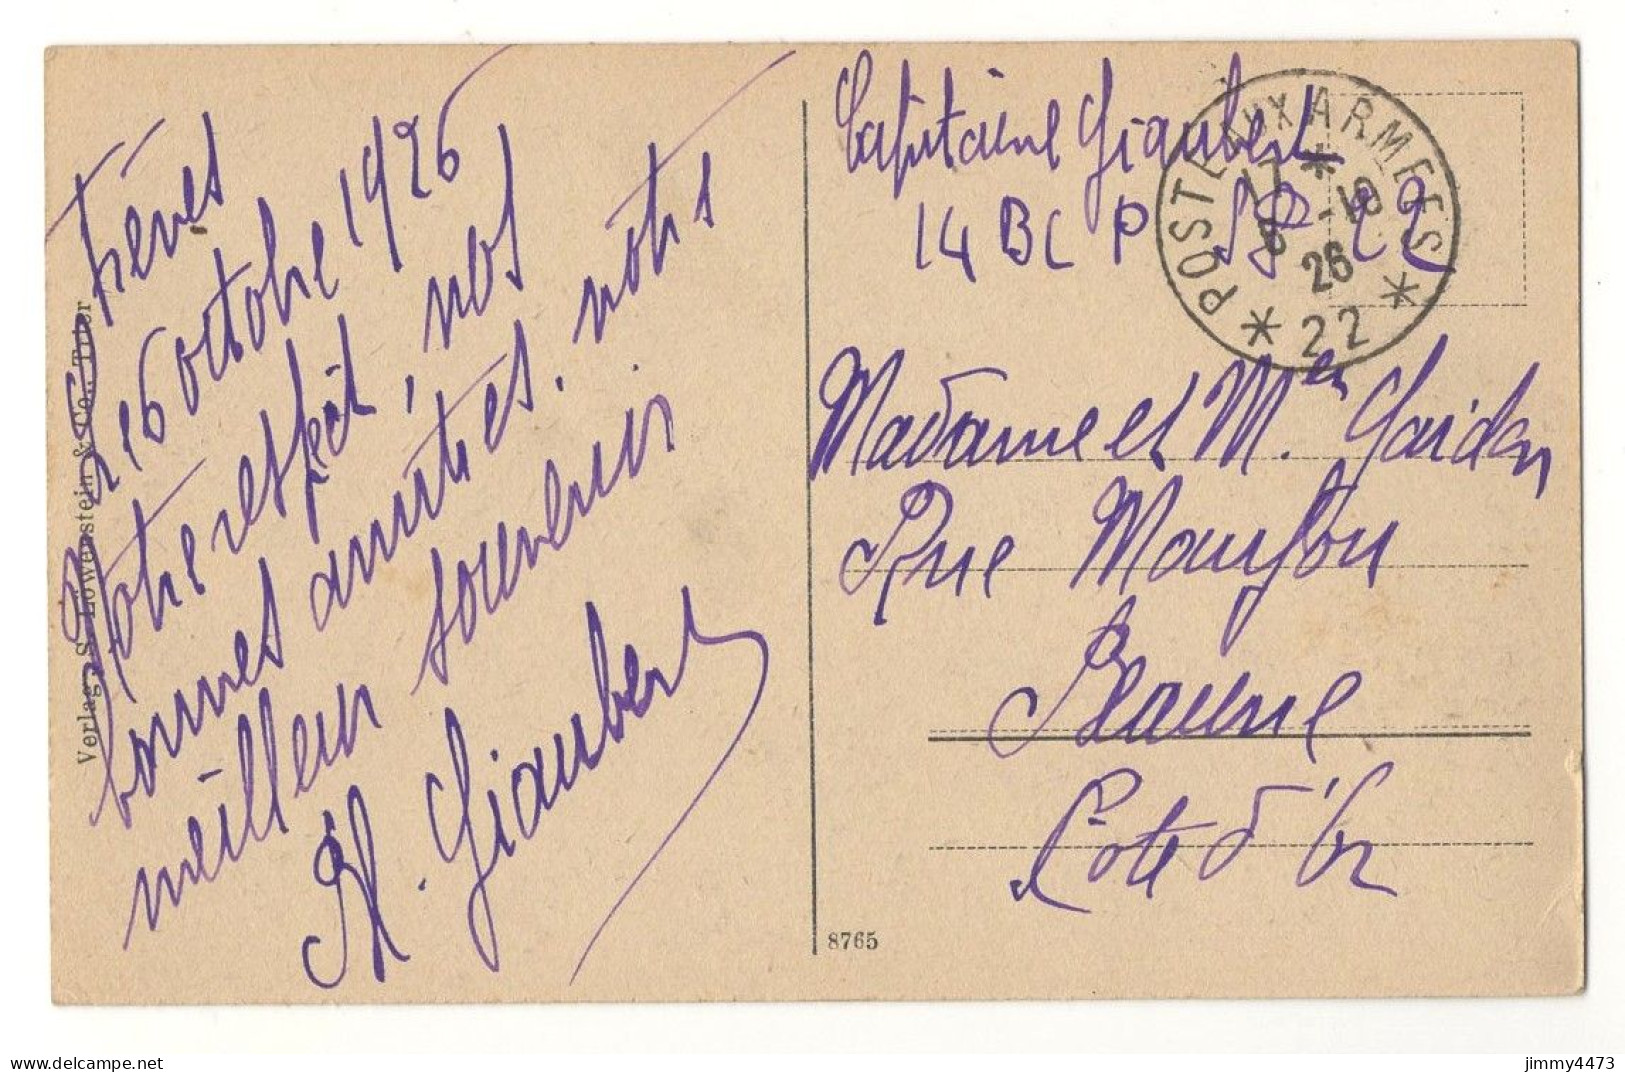 Trèves
16 octobre 1926
Notre respect, nos
bonnes amitiés. notre
meilleur souvenir
H. Giaubert
Verlag S. Löwenstein & Co., Trier
8765
Capitaine Giaubert
14 BCP SP 22
POSTE AUX ARMEES
17 *
6 -10
26
* 22 *
Madame et Mr. Gaidon
Rue Maufou
Beaune
Côte d'Or
jimmy4473